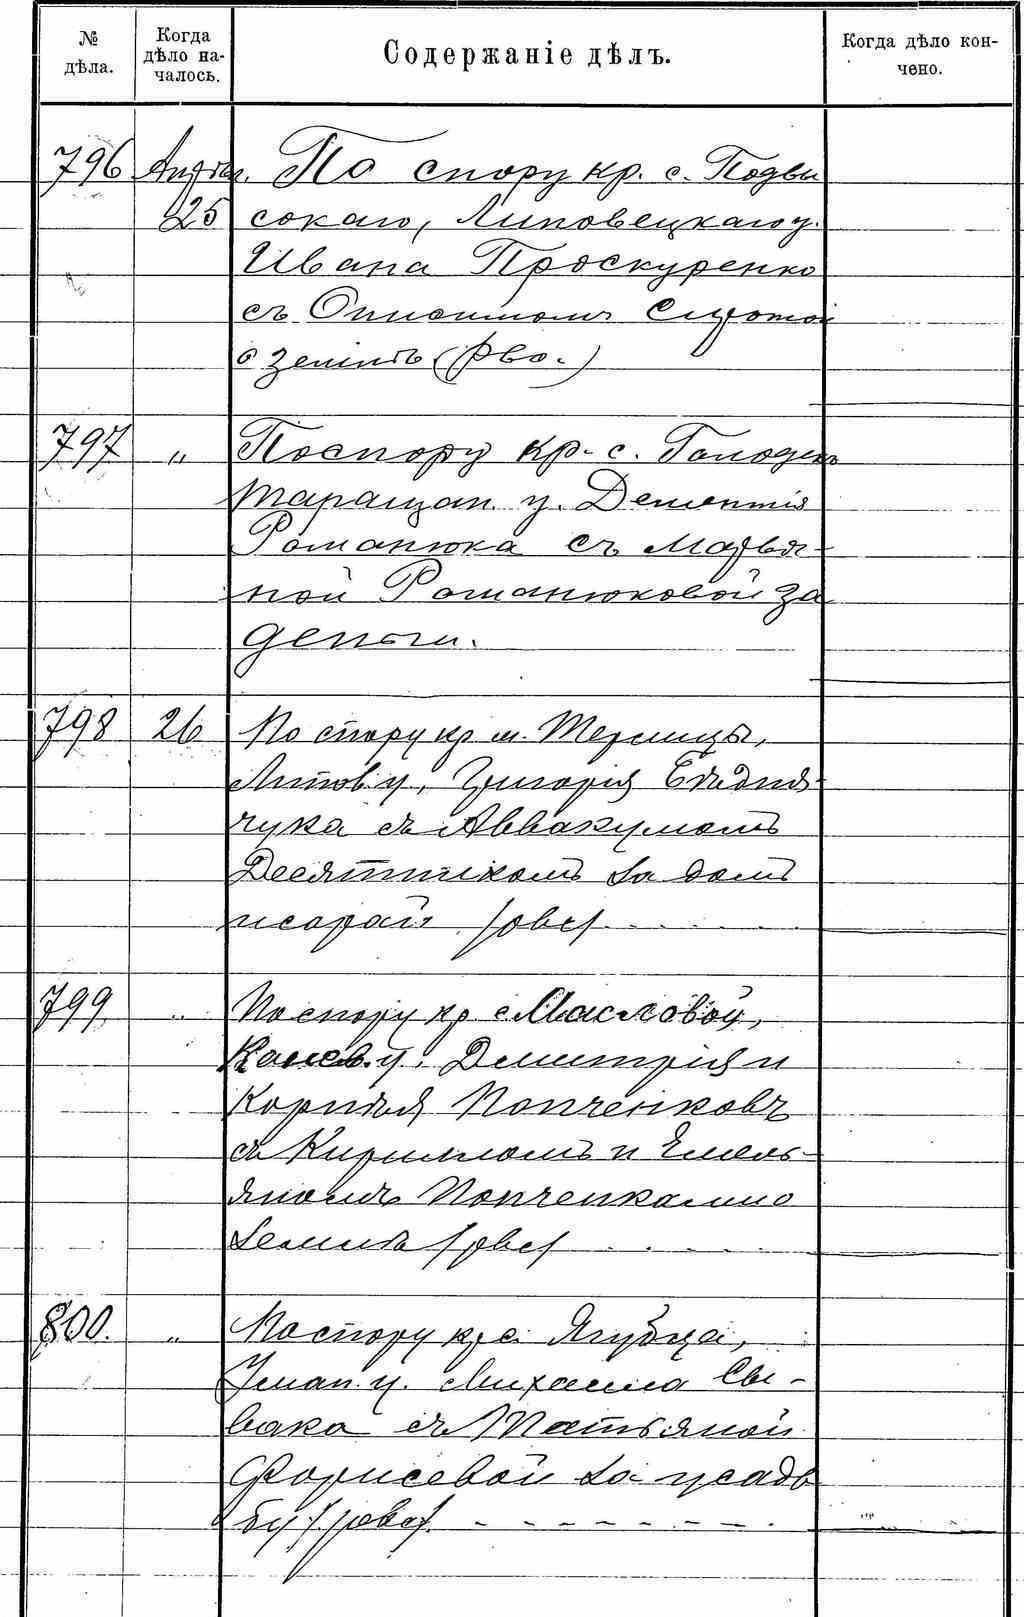 № дѣла.
Когда дѣло на-чалось.
Содержаніе дѣлъ.
Когда дѣло кон-чено.
796 Апрѣл. По спору кр. с. Подвы
25 сокаго, Липовецкаго у.
Ивана Проскуренко
съ Онисимомъ Сиротой
о землѣ (рво.)
797 „ По спору кр. с. Галодек
Таращан. у. Дементія
Романюка съ Марья-
ной Романюковой за
деньги.
798 26 По спору кр м.
Липов у, Григорія
чука съ Аввакумомъ
Десятникомъ за домъ
и сарай /рво/ . . . . .
799 „ По спору кр с Масловой,
Канев. у. Дмитрія и
Корнѣя Попченковъ
съ Кирилломъ и Емель-
яномъ Попченками о
землѣ /рво/ . . . .
800. „ По спору кр с. Ягубца,
Уман. у. Михаила Сы-
вака съ Татьяной
Форисевой за усадь
бу /рво/. - - - - - - - -